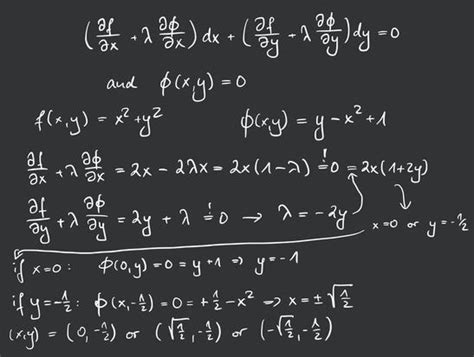 (∂f/∂x + λ ∂φ/∂x) dx + (∂f/∂y + λ ∂φ/∂y) dy = 0
and φ(x,y) = 0
f(x,y) = x² + y² φ(x,y) = y - x² + 1
∂f/∂x + λ ∂φ/∂x = 2x - 2λx = 2x(1-λ) =! 0 = 2x(1+2y)
∂f/∂y + λ ∂φ/∂y = 2y + λ =! 0 → λ = -2y
x=0 or y=-1/2
if x=0: φ(0,y) = 0 = y+1 ⇒ y=-1
if y=-1/2: φ(x,-1/2) = 0 = +1/2 - x² ⇒ x = ±√1/2
(x,y) = (0,-1/2) or (√1/2,-1/2) or (-√1/2,-1/2)